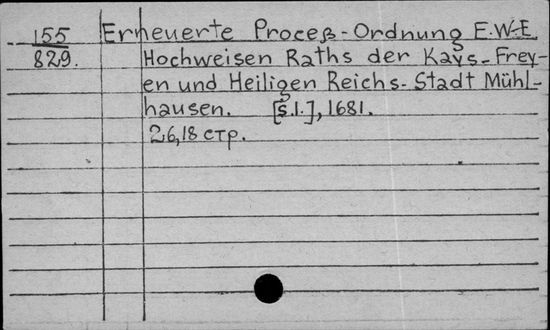 155 Erneuerte Proceß-Ordnung E.W.E.
829. Hochweisen Raths der Kays-Frey-
en und Heiligen Reichs-Stadt Mühl-
hausen. [S.l.], 1681.
26,18 стр.